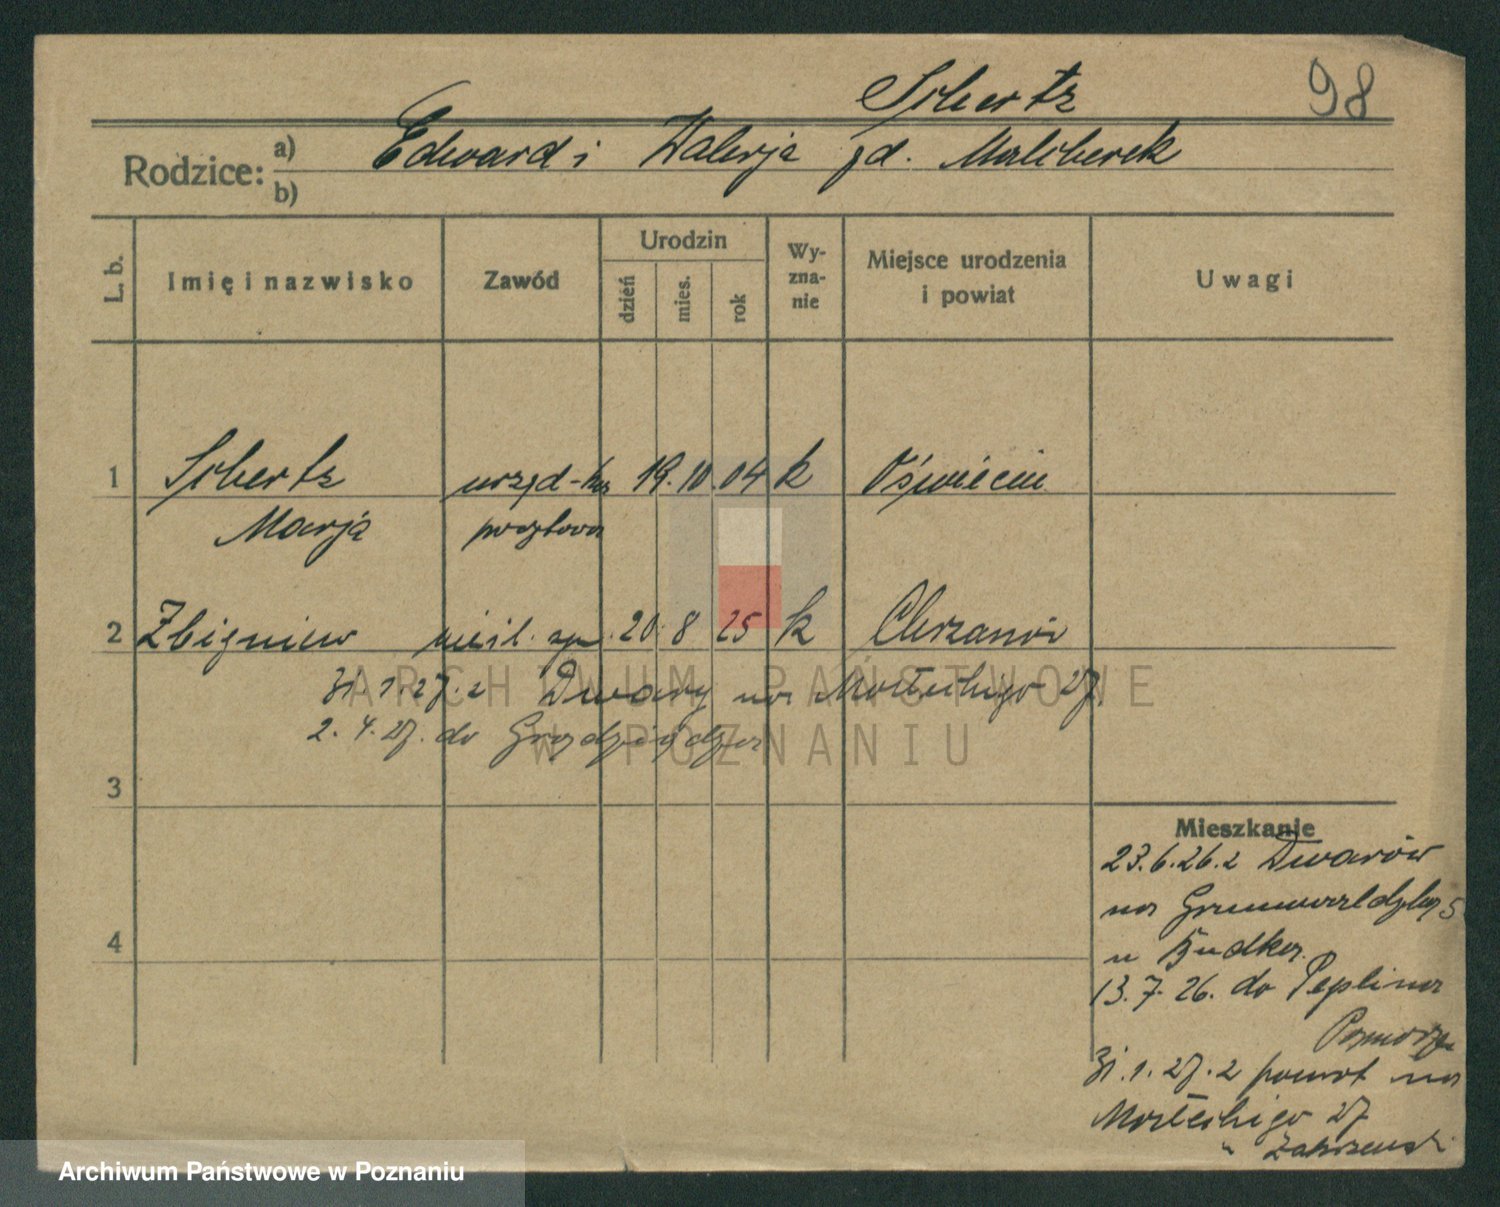 98
Schertz
Rodzice: a) Edward i Walerja zd.
b)
L. b. Imię i nazwisko Zawód Urodzin dzień mies. rok Wyznanie Miejsce urodzenia i powiat Uwagi
1 Schertz urzęd-ka 19. 10. 04 k Oświęcim
Marja pocztowa
2 Zbigniew nieśl. syn 20. 8 25 k Chrzanów
31. 1. 27. z Dwory na 27.
2. 4. 27. do Grudziądza
3
4
Mieszkanie
23. 6. 26. z Dworów
na Grunwaldzką 5
u Budka.
13. 7. 26. do Peplina
Pomorze
31. 1. 27. z powrot na
27
" Zakrzewski
ARCHIWUM PAŃSTWOWE
W POZNANIU
Archiwum Państwowe w Poznaniu